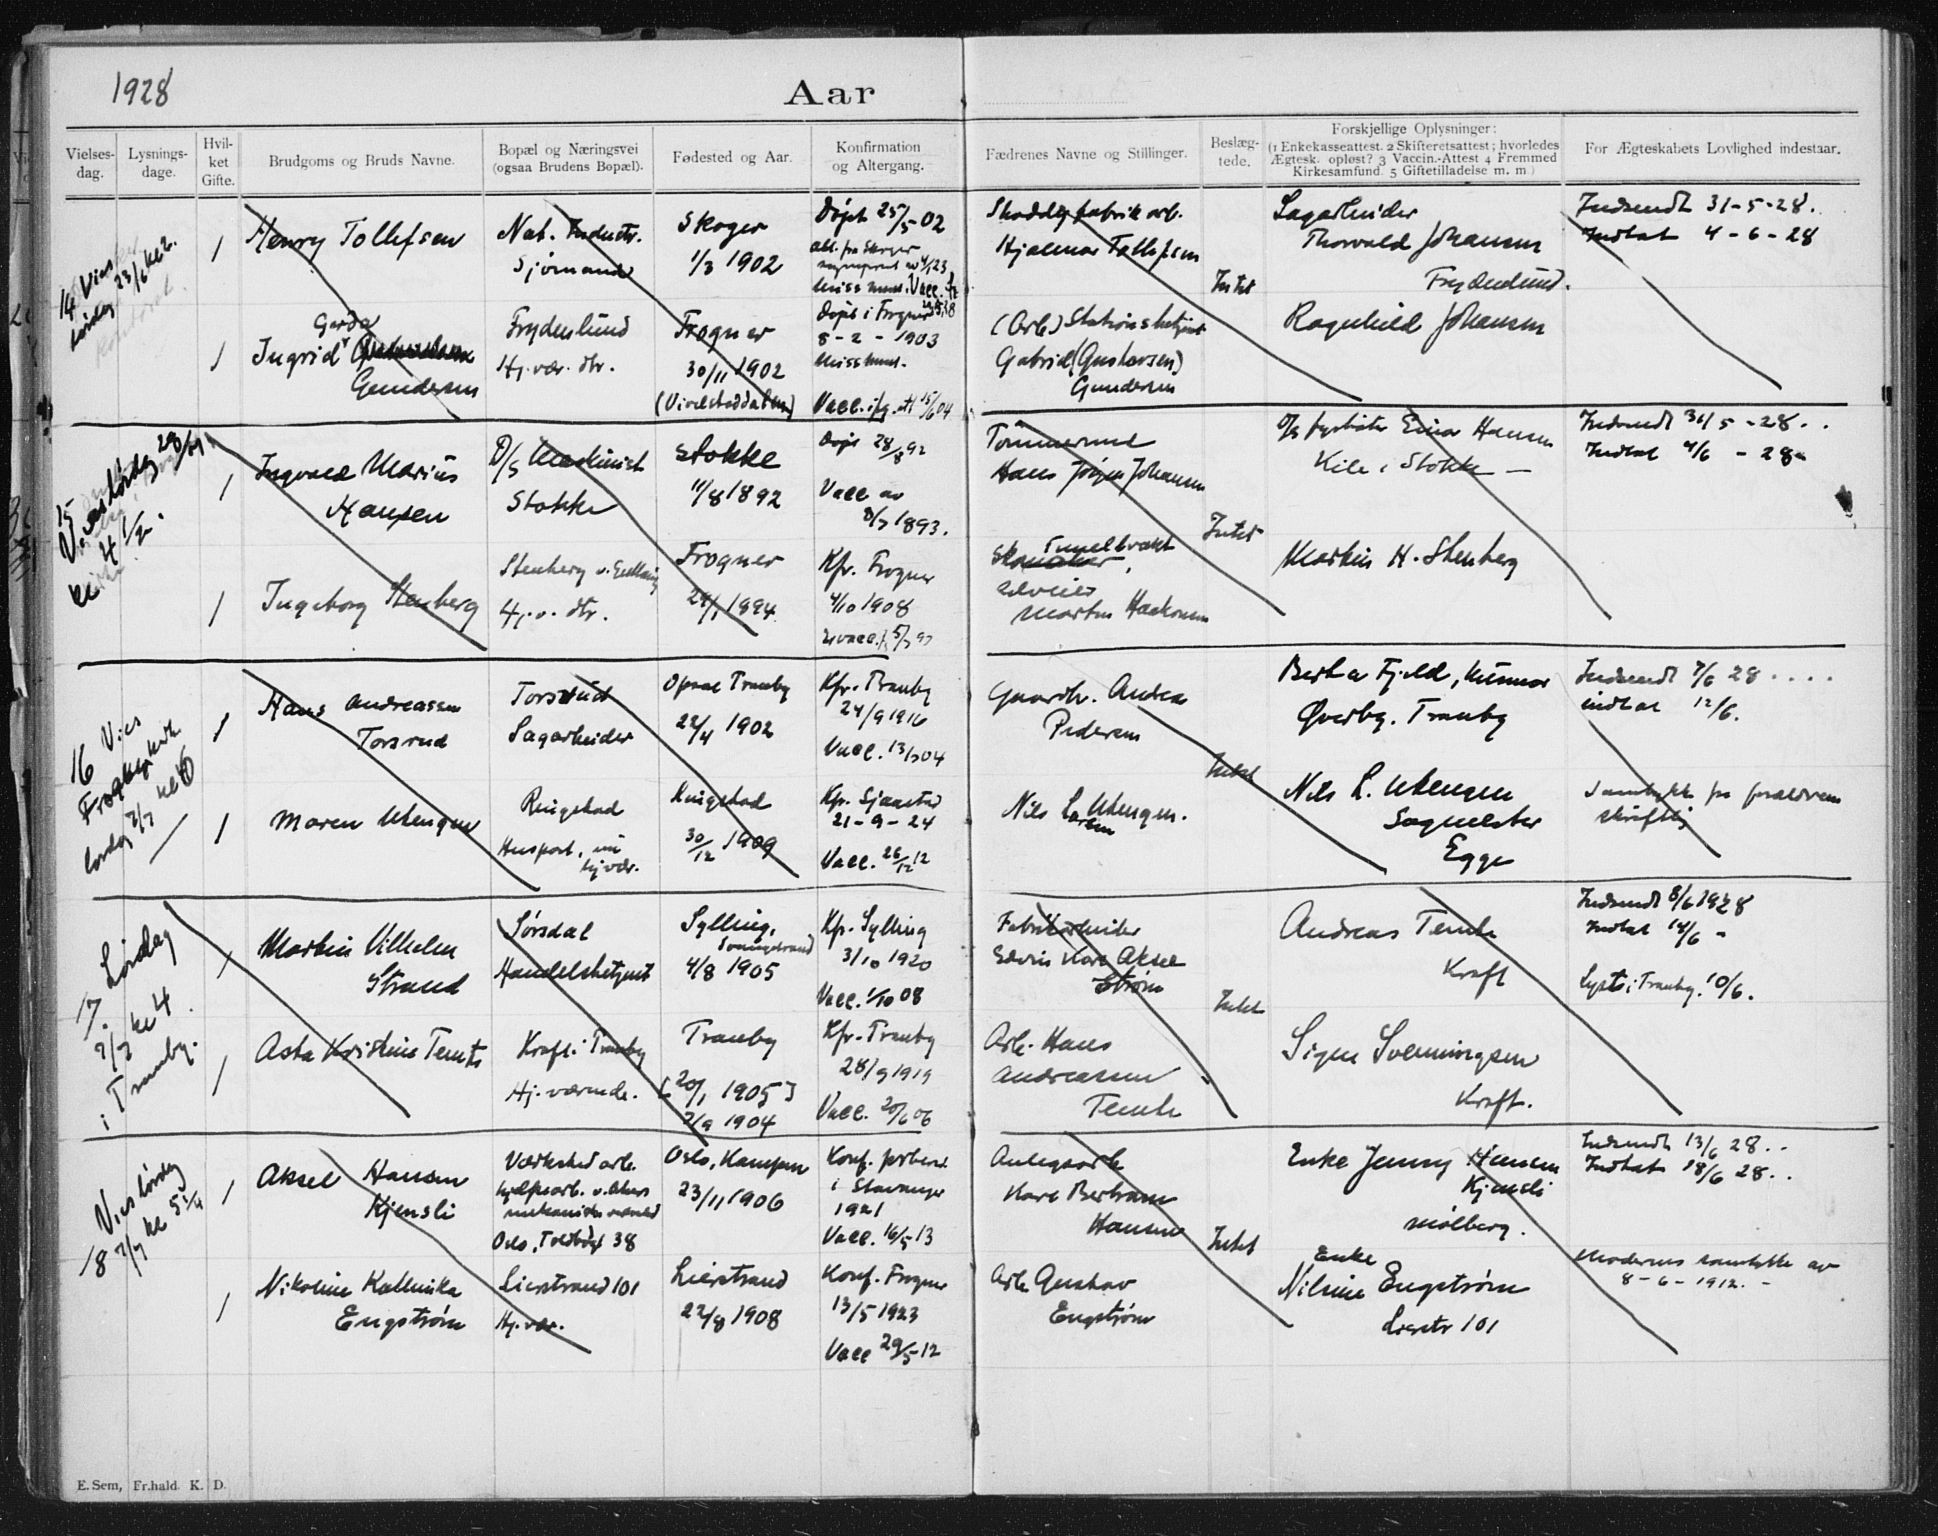 1928
Aar
Vielses-
dag.
Lysnings-
dage.
Hvil-
ket
Gifte.
Brudgoms og Bruds Navne.
Bopæl og Næringsvei
(ogsaa Brudens Bopæl).
Fødested og Aar.
Konfirmation
og Altergang.
Fædrenes Navne og Stillinger.
Beslæg-
tede.
Forskjellige Oplysninger:
(1 Enkekasseattest. 2 Skifteretsattest; hvorledes
Ægtesk. opløst? 3 Vaccin.-Attest 4 Fremmed
Kirkesamfund. 5 Giftetilladelse m. m)
For Ægteskabets Lovlighed indestaar.
14 Vies
Lørdag 23/6 kl 2.
1
Henry Tollefsen
Nat. Industr.
Sjømand
Skoger
1/3 1902
Døpt 25/5-02
Hjalmar Tollefsen
Intet
Sagarbeider
Thorvald Johansen
Frydenlund.
Indsendt 31-5-28.
Indtat 4-6-28
1
Gerda
Ingrid
Gundersen
Frydenlund
Hj. vær. dtr.
Frogner
30/11 1902
Døpt i Frogner
8-2-1903
Vacc. 15/6 04
(Arb.) Stationsbetjent
Gabriel (Gustavsen)
Gundersen
Ragnhild Johansen
15
Vies lørdag
kl 4 1/2.
1
Ingvald Marius
Hansen
D/S Maskinist
Stokke
Stokke
11/8 1892
Døpt 28/8 92
Vacc. av
1893.
Tømmermd
Hans Jørgen Johansen
Intet
Einar Hansen
Stokke
Indsendt 31/5-28..
Indtat 4/6-28-
1
Ingeborg Stenberg
Stenberg v.
Hj. v. dtr.
Frogner
1894
Kfr. Frogner
4/10 1908
Tunelvakt
Martin Haakonsen
Martin H. Stenberg
16 Vies
lørdag 7/7 kl 6
1
Hans Andreassen
Torsrud
Torsrud
Sagarbeider
Opsal Tranby
22/4 1902
Kfr. Tranby
24/9 1916
Vacc. 13/7 04
Gaardbr. Anders
Pedersen
Intet
Berta Fjeld,
Øverby. Tranby
Indsendt 7/6 28....
indtat 12/6.
1
Maren Utengen
Ringstad
Huspost, nu
hj. vær.
Ringstad
30/12 1909
Kfr. Sjaastad
21-9-24
Vacc. 26/12 12
Nils Larsen Utengen.
Nils L. Utengen
Sagmester
Egge
Samtykke fra forældrene
skriftlig
17. Lørdag
7/7 kl 4
i Tranby.
1
Martin Vilhelm
Strand
Sørsdal
Handelsbetjent
Sylling,
4/8 1905
Kfr. Sylling
3/10 1920
Vacc. 1/10 08
Fabrikarbeider
Edvin Kore Aksel
Strøm
Intet
Andreas Temte
Kraft
Indsendt 8/6 1928
Indtat 14/6 -
Lyst i Tranby. 10/6.
1
Asta Kristine Temte
Kraft i Tranby
Hj. værende.
Tranby
[20/1 1905]
2/9 1904
Kfr. Tranby
28/9 1919
Vacc. 20/6 06
Arb. Hans
Andreassen
Temte
Signe Svenningsen
Kraft.
18 Vies lørdag
7/7 kl 5 1/4
1
Aksel Hansen
Kjensli
Værksted arb.
hjelpearb. v. Akers
mekaniske værksted
Oslo, Toldbodgt 38
Oslo, Kampen
23/11 1906
Konf. forbered.
i Stavanger
1921
Vacc. 16/5 13
Anlegsarb
Kore Bertram
Hansen
Intet
Enke Jenny Hansen
Kjensli
Mølberg.
Indsendt 13/6 28..
Indtat 18/6 28..
1
Nikoline Kathinka
Engstrøm
Lierstrand 101
Hj. vær.
Lierstrand
22/8 1908
Konf. Frogner
13/5 1923
Vacc 29/5-12
Arb. Gustav
Engstrøm
Enke
Nilsine Engstrøm
Lierstr 101
Moderens samtykke av
8-6-1912.-
E. Sem, Fr.hald. K. D.